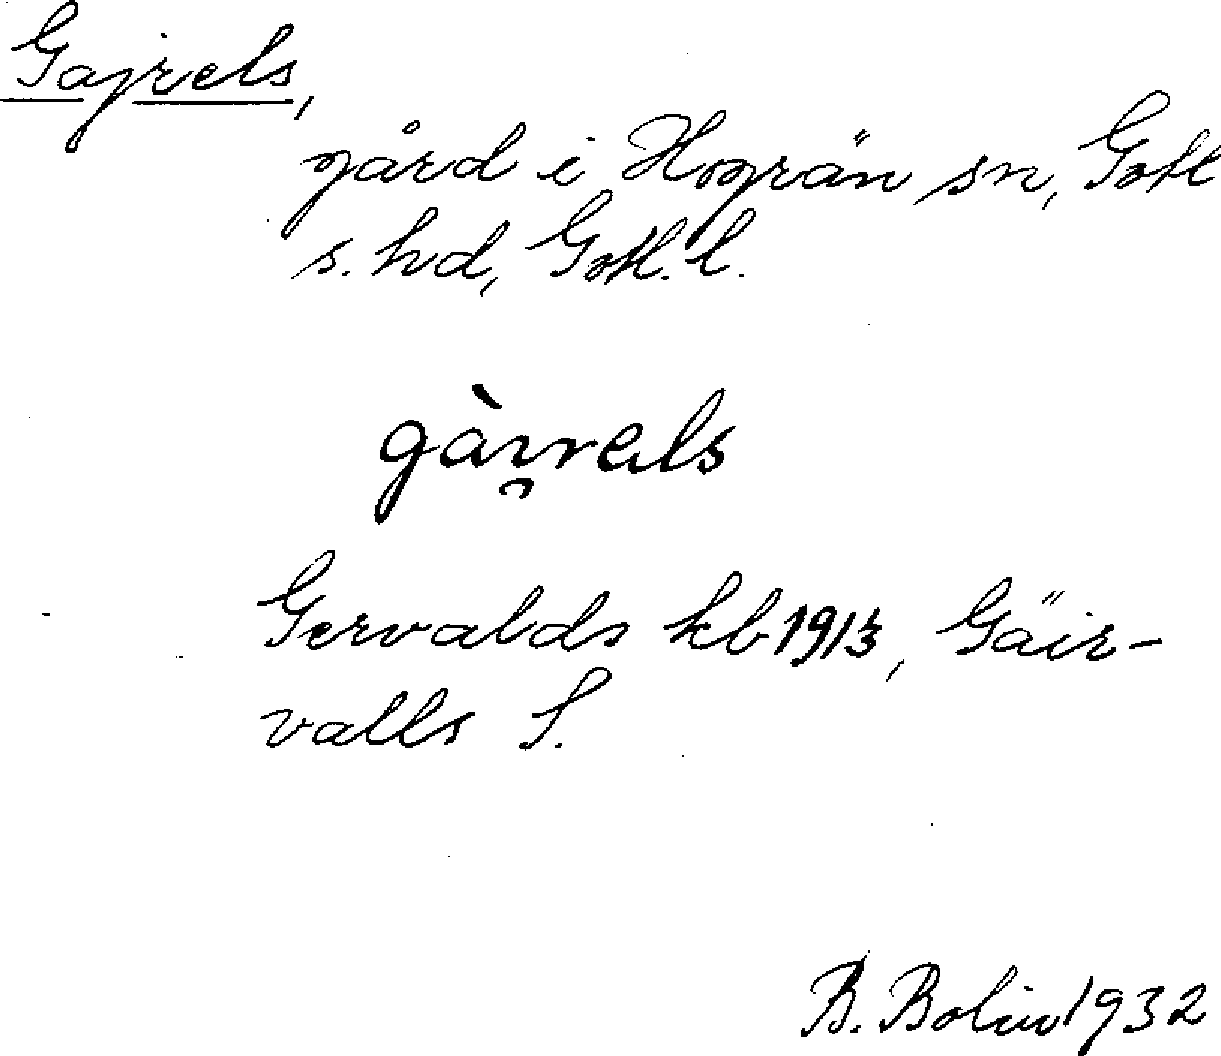 Gajrels,
gård i Hogrän sn, Gotl
s. hd, Gotl. l.
gàı̯rels
Gervalds kb 1913, Gäir-
valls S.
B. Bolin 1932